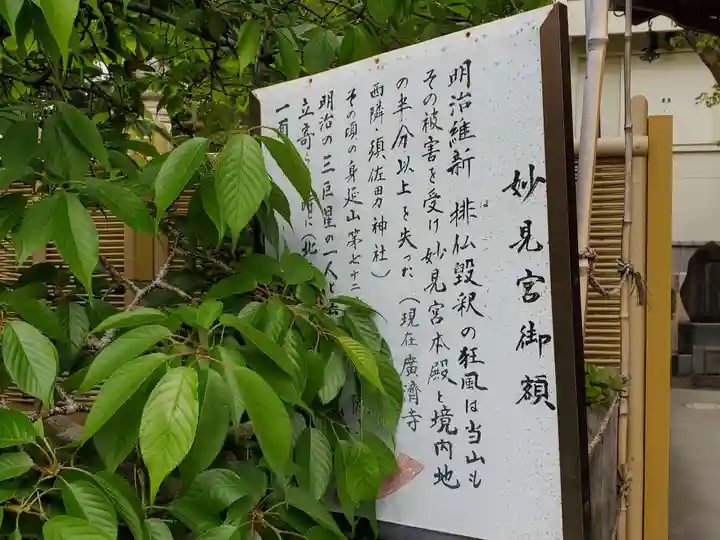 妙見宮御額
明治維新 排仏毀釈の狂風は当山も
その被害を受け妙見宮本殿と境内地
の半分以上を失った(現在廣済寺
西隣・須佐男神社)
その頃の身延山第七十二
明治の三巨星の一人と
立寄
一頁